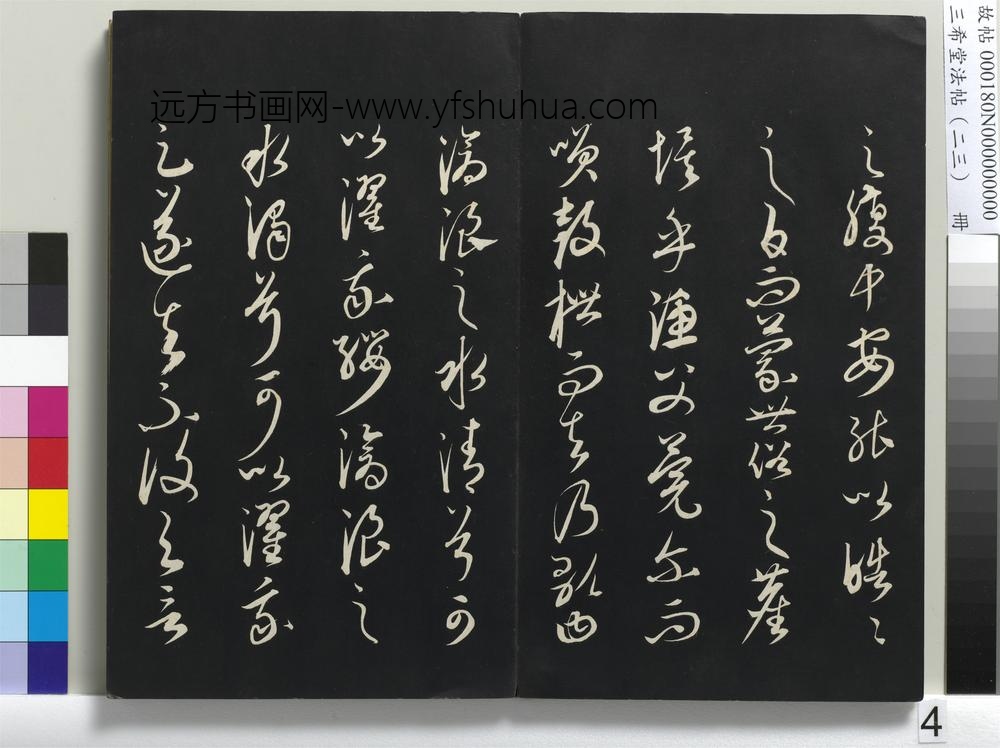 远方书画网-www.yfshuhua.com
故帖 000180N000000000
三希堂法帖（二三） 冊
之腹中安能以皓々
之白而蒙世俗之塵
埃乎漁父莞尔而
咲鼓枻而去乃歌曰
滄浪之水清兮可
以濯我纓滄浪之
水濁兮可以濯我
足遂去不復与言
4